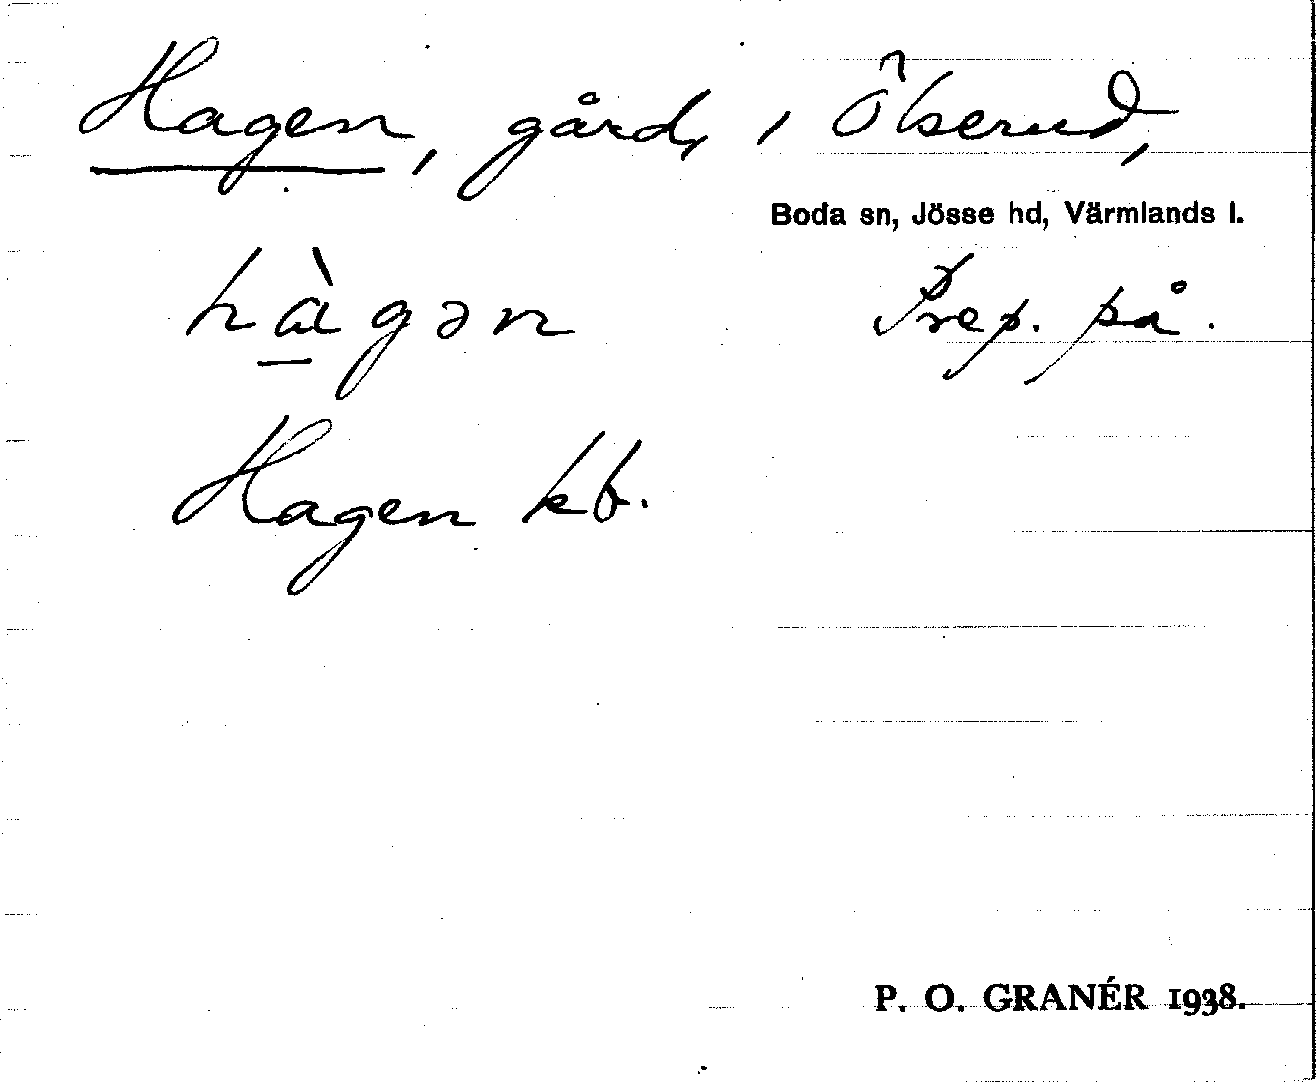 Hagen, gård, i Ölserud,
Boda sn, Jösse hd, Värmlands l.
hàgən Prep. på.
Hagen kb.
P. O. GRANÉR 1938.